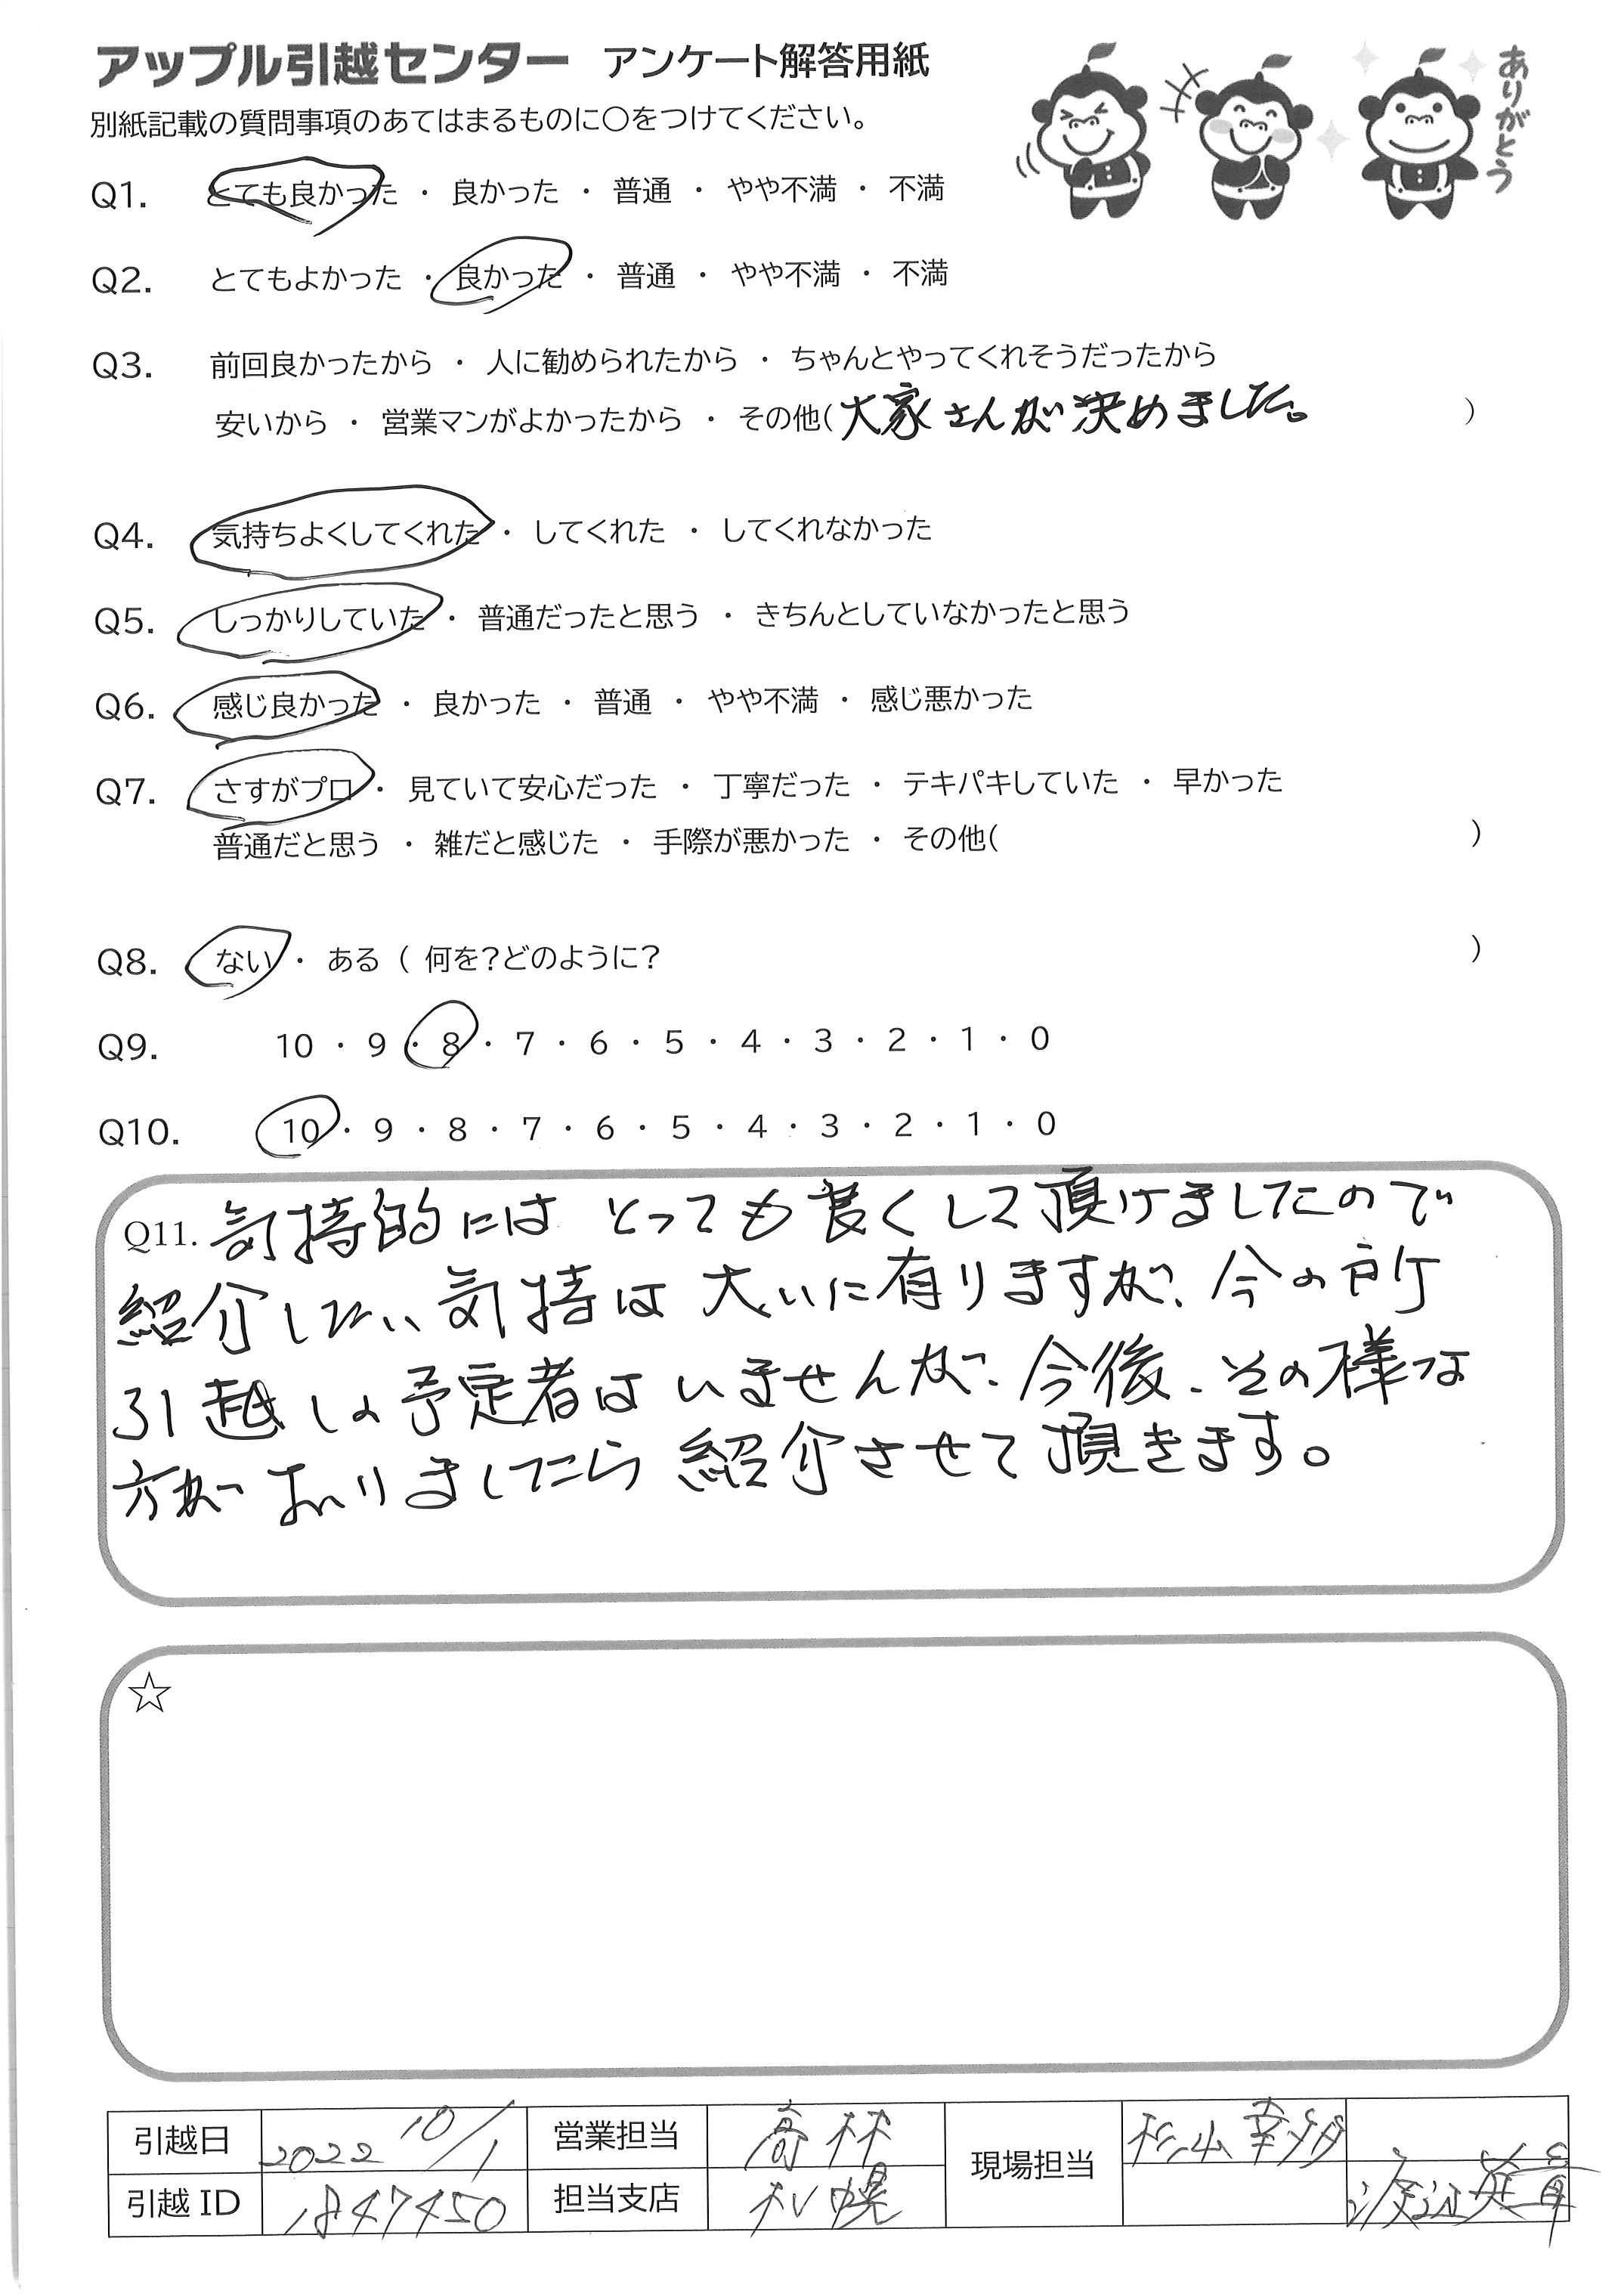 アップル引越センター アンケート解答用紙
ありがとう
別紙記載の質問事項のあてはまるものに○をつけてください。
Q1. とても良かった ・ 良かった ・ 普通 ・ やや不満 ・ 不満
Q2. とてもよかった ・ 良かった ・ 普通 ・ やや不満 ・ 不満
Q3. 前回良かったから ・ 人に勧められたから ・ ちゃんとやってくれそうだったから
安いから ・ 営業マンがよかったから ・ その他(大家さんが決めました。 )
Q4. 気持ちよくしてくれた ・ してくれた ・ してくれなかった
Q5. しっかりしていた ・ 普通だったと思う ・ きちんとしていなかったと思う
Q6. 感じ良かった ・ 良かった ・ 普通 ・ やや不満 ・ 感じ悪かった
Q7. さすがプロ ・ 見ていて安心だった ・ 丁寧だった ・ テキパキしていた ・ 早かった
普通だと思う ・ 雑だと感じた ・ 手際が悪かった ・ その他( )
Q8. ない ・ ある ( 何を?どのように? )
Q9. 10 ・ 9 ・ 8 ・ 7 ・ 6 ・ 5 ・ 4 ・ 3 ・ 2 ・ 1 ・ 0
Q10. 10 ・ 9 ・ 8 ・ 7 ・ 6 ・ 5 ・ 4 ・ 3 ・ 2 ・ 1 ・ 0
Q11. 気持的には とっても良くして頂けましたので
紹介したい気持は大いに有りますが、今の所
引越しの予定者はいませんが、今後、その様な
方がおりましたら紹介させて頂きます。
☆
引越日 2022 10/1 営業担当 高林 現場担当 杉山 渡辺
引越ID 1847450 担当支店 札幌